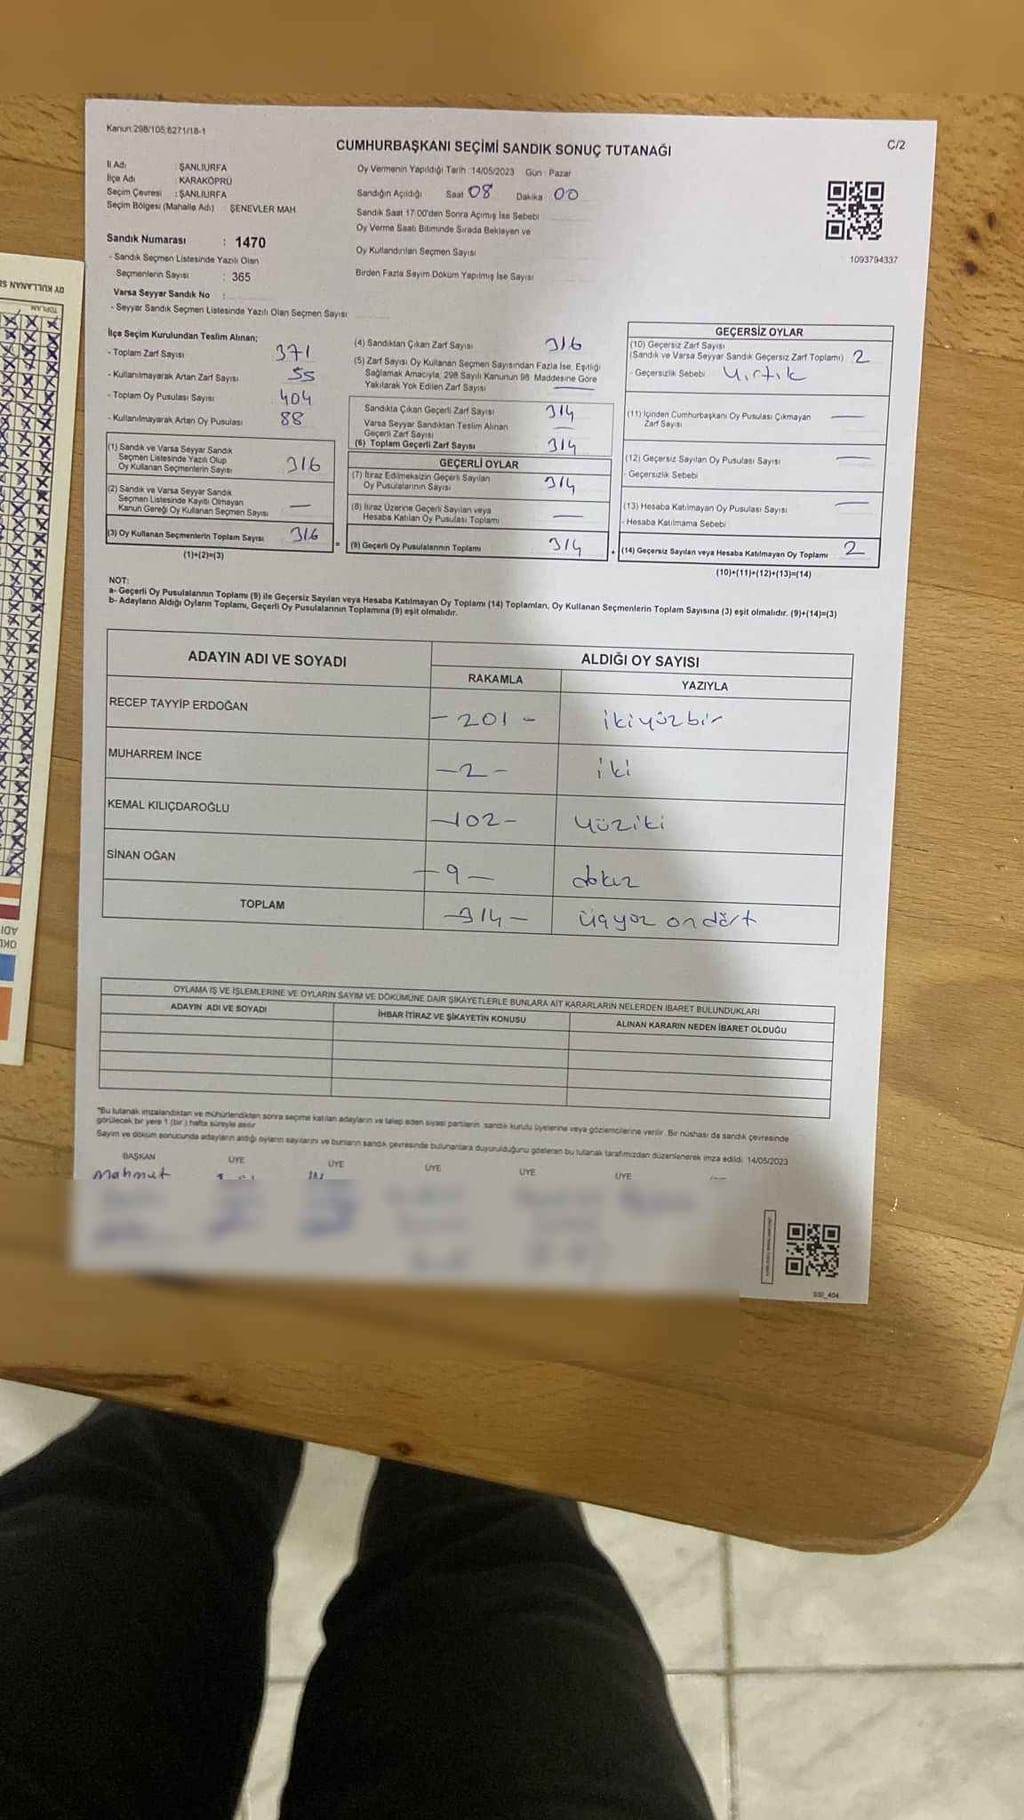 Kanun:298/105;6271/18-1
C/2
CUMHURBAŞKANI SEÇİMİ SANDIK SONUÇ TUTANAĞI
İl Adı : ŞANLIURFA
İlçe Adı KARAKÖPRÜ
Seçim Çevresi : ŞANLIURFA
Seçim Bölgesi (Mahalle Adı) ŞENEVLER MAH.
Sandık Numarası : 1470
- Sandık Seçmen Listesinde Yazılı Olan
Seçmenlerin Sayısı : 365
Varsa Seyyar Sandık No :
- Seyyar Sandık Seçmen Listesinde Yazılı Olan Seçmen Sayısı
Oy Vermenin Yapıldığı Tarih :14/05/2023 Gün : Pazar
Sandığın Açıldığı Saat 08 Dakika 00
Sandık Saat 17:00'den Sonra Açılmış İse Sebebi
Oy Verme Saati Bitiminde Sırada Bekleyen ve
Oy Kullandırılan Seçmen Sayısı
Birden Fazla Sayım Döküm Yapılmış İse Sayısı
1093794337
İlçe Seçim Kurulundan Teslim Alınan;
- Toplam Zarf Sayısı 371
- Kullanılmayarak Artan Zarf Sayısı 55
- Toplam Oy Pusulası Sayısı 404
- Kullanılmayarak Artan Oy Pusulası 88
(1) Sandık ve Varsa Seyyar Sandık
Seçmen Listesinde Yazılı Olup
Oy Kullanan Seçmenlerin Sayısı 316
(2) Sandık ve Varsa Seyyar Sandık
Seçmen Listesinde Kayıtlı Olmayan
Kanun Gereği Oy Kullanan Seçmen Sayısı —
(3) Oy Kullanan Seçmenlerin Toplam Sayısı 316
(1)+(2)=(3)
(4) Sandıktan Çıkan Zarf Sayısı 316
(5) Zarf Sayısı Oy Kullanan Seçmen Sayısından Fazla İse, Eşitliği
Sağlamak Amacıyla, 298 Sayılı Kanunun 98. Maddesine Göre
Yakılarak Yok Edilen Zarf Sayısı —
Sandıkta Çıkan Geçerli Zarf Sayısı 314
Varsa Seyyar Sandıktan Teslim Alınan
Geçerli Zarf Sayısı —
(6) Toplam Geçerli Zarf Sayısı 314
GEÇERLİ OYLAR
(7) İtiraz Edilmeksizin Geçerli Sayılan
Oy Pusulalarının Sayısı 314
(8) İtiraz Üzerine Geçerli Sayılan veya
Hesaba Katılan Oy Pusulası Toplamı —
= (9) Geçerli Oy Pusulalarının Toplamı 314
GEÇERSİZ OYLAR
(10) Geçersiz Zarf Sayısı
(Sandık ve Varsa Seyyar Sandık Geçersiz Zarf Toplamı) 2
- Geçersizlik Sebebi Yırtık
(11) İçinden Cumhurbaşkanı Oy Pusulası Çıkmayan
Zarf Sayısı —
(12) Geçersiz Sayılan Oy Pusulası Sayısı —
- Geçersizlik Sebebi
(13) Hesaba Katılmayan Oy Pusulası Sayısı —
- Hesaba Katılmama Sebebi
+ (14) Geçersiz Sayılan veya Hesaba Katılmayan Oy Toplamı 2
(10)+(11)+(12)+(13)=(14)
NOT:
a- Geçerli Oy Pusulalarının Toplamı (9) ile Geçersiz Sayılan veya Hesaba Katılmayan Oy Toplamı (14) Toplamları, Oy Kullanan Seçmenlerin Toplam Sayısına (3) eşit olmalıdır. (9)+(14)=(3)
b- Adayların Aldığı Oyların Toplamı, Geçerli Oy Pusulalarının Toplamına (9) eşit olmalıdır.
ADAYIN ADI VE SOYADI
ALDIĞI OY SAYISI
RAKAMLA YAZIYLA
RECEP TAYYİP ERDOĞAN - 201 - ikiyüzbir
MUHARREM İNCE - 2 - iki
KEMAL KILIÇDAROĞLU - 102 - yüziki
SİNAN OĞAN - 9 - dokuz
TOPLAM - 314 - üçyüz ondört
OYLAMA İŞ VE İŞLEMLERİNE VE OYLARIN SAYIM VE DÖKÜMÜNE DAİR ŞİKAYETLERLE BUNLARA AİT KARARLARIN NELERDEN İBARET BULUNDUKLARI
ADAYIN ADI VE SOYADI İHBAR İTİRAZ VE ŞİKAYETİN KONUSU ALINAN KARARIN NEDEN İBARET OLDUĞU
*Bu tutanak imzalandıktan ve mühürlendikten sonra seçime katılan adayların ve talep eden siyasi partilerin sandık kurulu üyelerine veya gözlemcilerine verilir. Bir nüshası da sandık çevresinde
görülecek bir yere 1 (bir) hafta süreyle asılır
Sayım ve döküm sonucunda adayların aldığı oyların sayılarını ve bunların sandık çevresinde bulunanlara duyurulduğunu gösteren bu tutanak tarafımızdan düzenlenerek imza edildi. 14/05/2023
BAŞKAN ÜYE ÜYE ÜYE ÜYE ÜYE
Mahmut
OY KULLANAN
TOPLAM